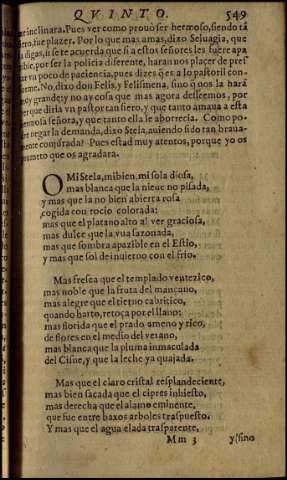 QVINTO. 549
inclinara. Pues ver como prouò ser hermoso, siendo tã
fiero, fue plazer. Por lo que mas amas, dixo Seluagia, que
digas, si se te acuerda que si a estos señores les fuere apa
zible, por ser la policia diferente, haran nos plazer de pres
tar vn poco de paciencia, pues dizes q̃ es a lo pastoril con-
No, dixo don Felis, y Felismena, sino q̃ nos la harà
muy grande: y no ay cosa que mas agora desseemos, por
ver que diria vn pastor tan fiero, y que tanto amaua a esta
hermosa señora, y que tanto ella le aborrecia. Como po-
negar la demanda, dixo Stela, auiendo sido tan braua-
mente conjurada? Pues estad muy atentos, porque yo os
prometo que os agradara.
O Mi Stela, mi bien, mi sola diosa,
mas blanca que la nieue no pisada,
y mas que la no bien abierta rosa
cogida con rocio colorada:
mas que el platano alto al ver graciosa,
mas dulce que la vua sazonada,
mas que sombra apazible en el Estio,
y mas que sol de inuierno con el frio.
Mas fresca que el templado ventezico,
mas noble que la fruta del mançano,
mas alegre que el tierno cabritico,
quando harto, retoça por el llano:
mas florida que el prado ameno y rico,
de flores en el medio del verano,
mas blanca que la pluma inmaculada
del Cisne, y que la leche ya quajada.
Mas que el claro cristal resplandeciente,
mas bien sacada que el cipres inhiesto,
mas derecha que el alamo eminente,
que fue entre baxos arboles traspuesto.
Y mas que el agua elada trasparente,
Mm 3 y (sino